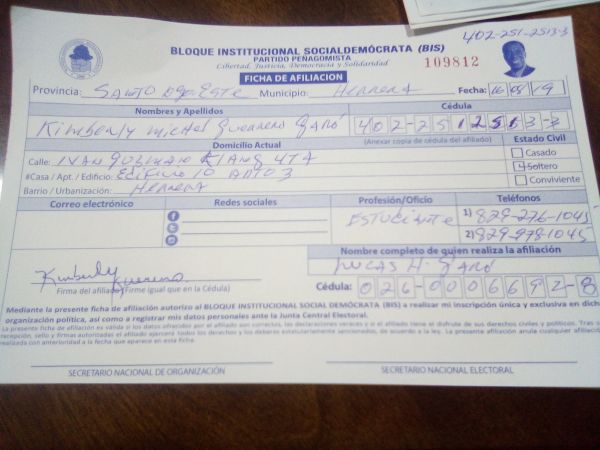 402-251-2513-3
BLOQUE INSTITUCIONAL SOCIALDEMÓCRATA (BIS)
PARTIDO PEÑAGOMISTA
Libertad, Justicia, Democracia y Solidaridad
109812
FICHA DE AFILIACION
Provincia: SANTO Dgo. ESTE Municipio: HERRERA Fecha: 16/08/19
Nombres y Apellidos Cédula
Kimberly Michel Guerrero Garó 402-25125 3-3
Domicilio Actual (Anexar copia de cédula del afiliado) Estado Civil
Calle: IVAN 4TA Casado
#Casa / Apt. / Edificio: EDIFICIO 10 APTO 3 Soltero
Barrio / Urbanización: HERRERA Conviviente
Correo electrónico Redes sociales Profesión/Oficio Teléfonos
ESTUDIANTE 1) 829-276-1045
2) 829-978-1045
Nombre completo de quien realiza la afiliación
Kimberly Guerrero LUCAS H. GARÓ
Firma del afiliado (Firme igual que en la Cédula) Cédula: 026-0006692-8
Mediante la presente ficha de afiliación autorizo al BLOQUE INSTITUCIONAL SOCIAL DEMÓCRATA (BIS) a realizar mi inscripción única y exclusiva en dicha
organización política, así como a registrar mis datos personales ante la Junta Central Electoral.
La presente ficha de afiliación es válida si los datos ofrecidos por el afiliado son correctos, las declaraciones veraces y si el afiliado tiene el disfrute de sus derechos civiles y políticos. Tras
recepción, sello y firmas autorizadas el afiliado ejercerá todos los derechos y los deberes estatutariamente sancionados, de acuerdo a la ley. La presente afiliación anula cualquier
realizada con anterioridad a la fecha que aparece en esta ficha.
SECRETARIO NACIONAL DE ORGANIZACIÓN SECRETARIO NACIONAL ELECTORAL